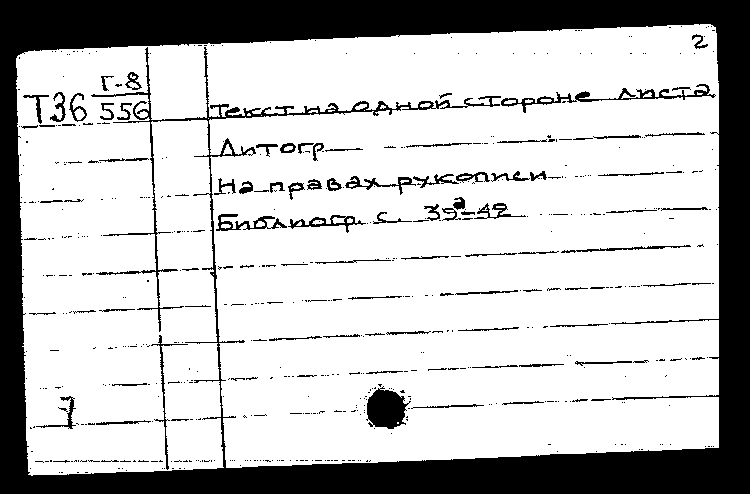 2
Т36 Г-8/556
Текст на одной стороне листа.
Литогр
На правах рукописи
Библиогр. с. 39а-42
7